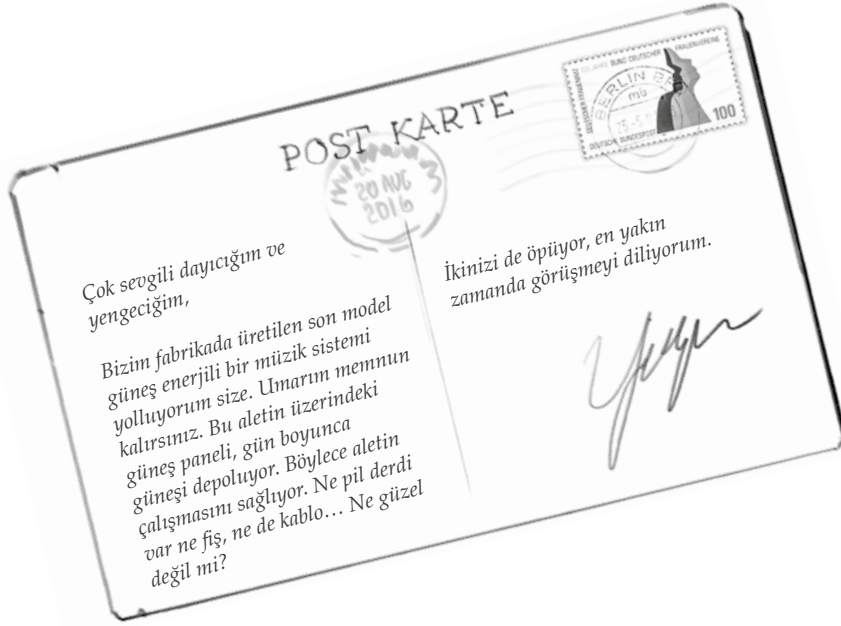 POST KARTE
20 AUG
2016
BUND DEUTSCHER FRAUENVEREINE
BERLIN
mb
100
DEUTSCHE BUNDESPOST
Çok sevgili dayıcığım ve
yengeciğim,
Bizim fabrikada üretilen son model
güneş enerjili bir müzik sistemi
yolluyorum size. Umarım memnun
kalırsınız. Bu aletin üzerindeki
güneş paneli, gün boyunca
güneşi depoluyor. Böylece aletin
çalışmasını sağlıyor. Ne pil derdi
var ne fiş, ne de kablo… Ne güzel
değil mi?
İkinizi de öpüyor, en yakın
zamanda görüşmeyi diliyorum.